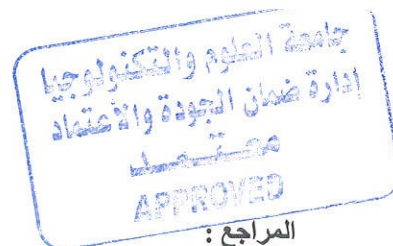 جامعة العلوم والتكنولوجيا
إدارة ضمان الجودة والاعتماد
معتمد
APPROVED
المراجع :